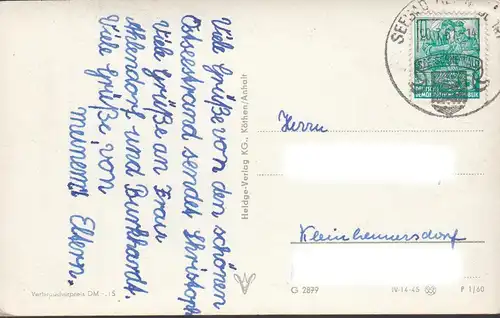 Viele Grüße von den schönen
Ostseestrand sendet Christoph
Viele Grüße an Frau
Ahlendorf und Burkhardt.
Viele Grüße von
meinen Eltern.
Verbraucherpreis DM -.15
Heldge-Verlag KG., Köthen/Anhalt
SEEBAD
10
Herrn
Kleinhennersdorf
G 2899
IV-14-45
P 1/60